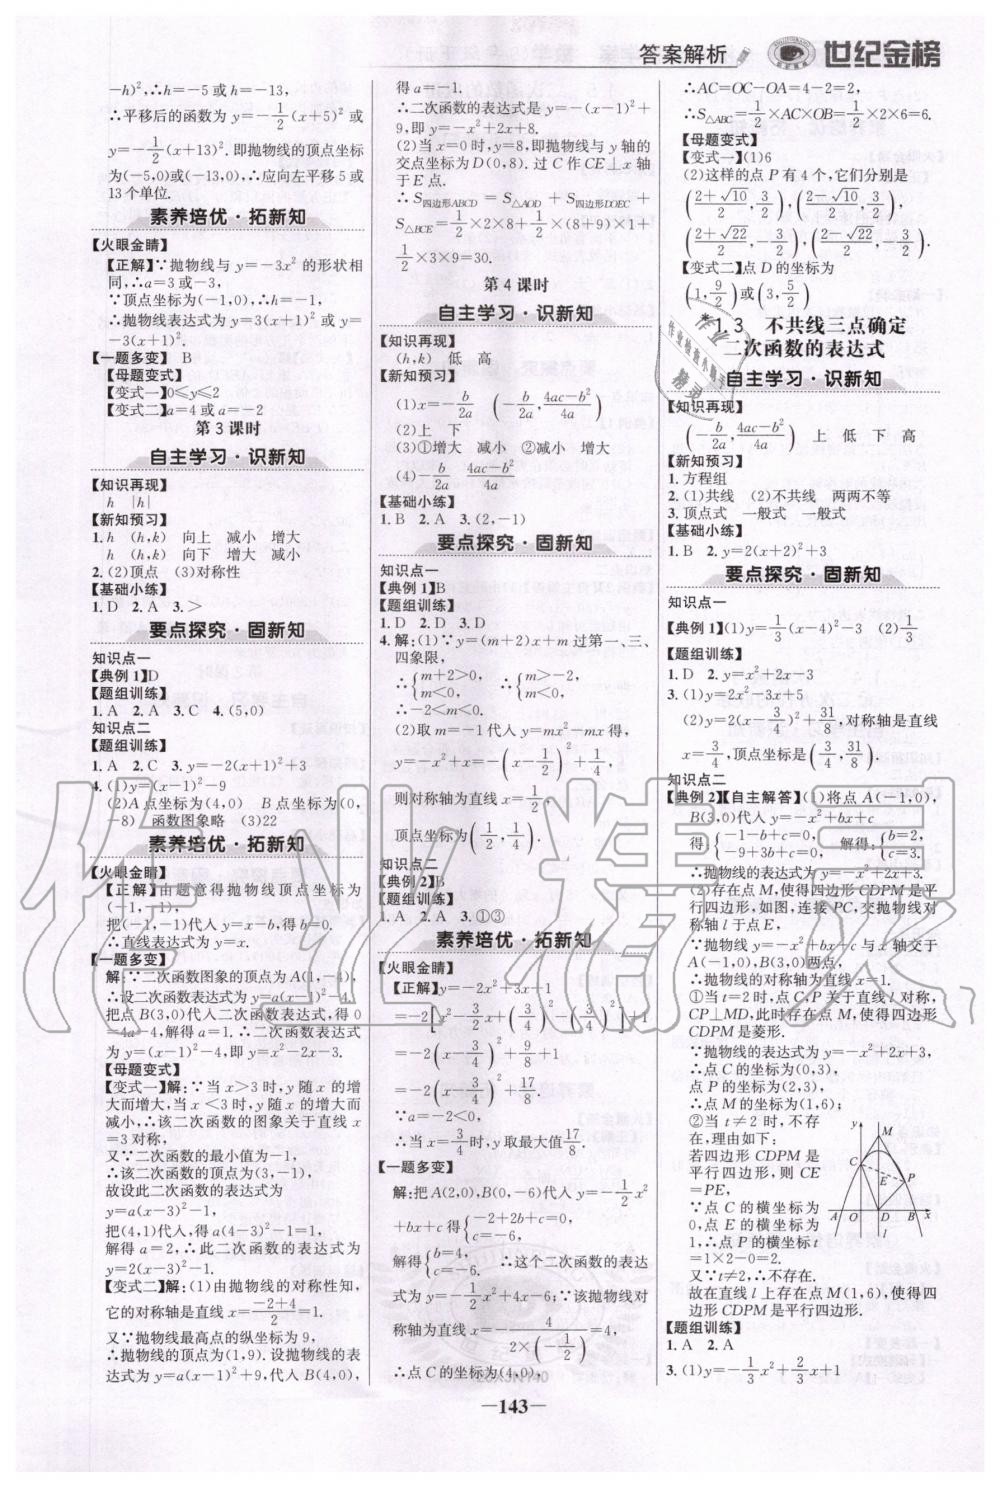 答案解析 世纪金榜
-h)²,∴h=-5或h=-13,
∴平移后的函数为y=-1/2(x+5)²或
y=-1/2(x+13)². 即抛物线的顶点坐标
为(-5,0)或(-13,0),∴应向左平移5或
13个单位.
素养培优·拓新知
【火眼金睛】
【正解】∵抛物线与y=-3x²的形状相
同,∴a=3或-3,
∵顶点坐标为(-1,0),∴h=-1,
∴抛物线表达式为y=3(x+1)²或y=
-3(x+1)².
【一题多变】 B
【母题变式】
【变式一】0≤y≤2
【变式二】a=4或a=-2
第3课时
自主学习·识新知
【知识再现】
h |h|
【新知预习】
1. h (h,k) 向上 减小 增大
h (h,k) 向下 增大 减小
2. (2)顶点 (3)对称性
【基础小练】
1. D 2. A 3. >
要点探究·固新知
知识点一
【典例1】D
【题组训练】
1. A 2. A 3. C 4. (5,0)
知识点二
【题组训练】
1. A 2. C 3. y=-2(x+1)²+3
4. (1)y=(x-1)²-9
(2)A点坐标为(4,0) B点坐标为(0,
-8) 函数图象略 (3)22
素养培优·拓新知
【火眼金睛】
【正解】由题意得抛物线顶点坐标为
(-1,-1),
把(-1,-1)代入y=kx+b得b=0.
∴直线表达式为y=x.
【一题多变】
解:∵二次函数图象的顶点为A(1,-4),
∴设二次函数表达式为y=a(x-1)²-4,
把点B(3,0)代入二次函数表达式,得0
=4a-4,解得a=1.∴二次函数表达式
为y=(x-1)²-4,即y=x²-2x-3.
【母题变式】
【变式一】解:∵当x>3时,y随x的增大
而增大,当x<3时,y随x的增大而
减小,∴该二次函数的图象关于直线x
=3对称,
又∵二次函数的最小值为-1,
∴该二次函数的顶点为(3,-1),
故设此二次函数的表达式为
y=a(x-3)²-1,
把(4,1)代入,得a(4-3)²-1=1,
解得a=2,∴此二次函数的表达式为
y=2(x-3)²-1.
【变式二】解:(1)由抛物线的对称性知,
它的对称轴是直线x=(-2+4)/2=1.
又∵抛物线最高点的纵坐标为9,
∴抛物线的顶点为(1,9). 设抛物线的表
达式为y=a(x-1)²+9,代入B(4,0),
得a=-1.
∴二次函数的表达式是y=-(x-1)²+
9,即y=-x²+2x+8.
(2)当x=0时,y=8,即抛物线与y轴的
交点坐标为D(0,8). 过C作CE⊥x轴
于E点.
∴S四边形ABCD=S△AOD+S四边形DOEC+
S△BCE=1/2×2×8+1/2×(8+9)×1+
1/2×3×9=30.
第4课时
自主学习·识新知
【知识再现】
(h,k) 低 高
【新知预习】
(1)x=-b/2a (-b/2a,(4ac-b²)/4a)
(2)上 下
(3)①增大 减小 ②减小 增大
(4)-b/2a (4ac-b²)/4a
【基础小练】
1. B 2. A 3. (2,-1)
要点探究·固新知
知识点一
【典例1】B
【题组训练】
1. D 2. D 3. D
4. 解:(1)∵y=(m+2)x+m过第一、三、
四象限,
∴{m+2>0, m<0, ∴{m>-2, m<0,
∴-2<m<0.
(2)取m=-1代入y=mx²-mx得,
y=-x²+x=-(x-1/2)²+1/4,
则对称轴为直线x=1/2,
顶点坐标为(1/2,1/4).
知识点二
【典例2】B
【题组训练】
1. A 2. A 3. ①③
素养培优·拓新知
【火眼金睛】
【正解】y=-2x²+3x+1
=-2[x²-3/2x+(3/4)²-(3/4)²]+1
=-2(x-3/4)²+9/8+1
=-2(x-3/4)²+17/8.
∵a=-2<0,
∴当x=3/4时,y取最大值17/8.
【一题多变】
解:把A(2,0),B(0,-6)代入y=-1/2x²
+bx+c得{-2+2b+c=0, c=-6,
解得{b=4, c=-6. ∴这个二次函数的表达
式为y=-1/2x²+4x-6;∵该抛物线对
称轴为直线x=-4/(2×(-1/2))=4,
∴点C的坐标为(4,0),
∴AC=OC-OA=4-2=2,
∴S△ABC=1/2×AC×OB=1/2×2×6=6.
【母题变式】
【变式一】(1)6
(2)这样的点P有4个,它们分别是
((2+√10)/2,3/2),((2-√10)/2,3/2),
((2+√22)/2,-3/2),((2-√22)/2,-3/2).
【变式二】点D的坐标为
(1,9/2)或(3,5/2)
*1.3 不共线三点确定
二次函数的表达式
自主学习·识新知
【知识再现】
(-b/2a,(4ac-b²)/4a) 上 低 下 高
【新知预习】
1. 方程组
2. (1)共线 (2)不共线 两两不等
3. 顶点式 一般式 一般式
【基础小练】
1. B 2. y=2(x+2)²+3
要点探究·固新知
知识点一
【典例1】(1)y=1/3(x-4)²-3 (2)1/3
【题组训练】
1. D 2. y=x²+2x+2
3. (1)y=2x²-3x+5
(2)y=2(x-3/4)²+31/8,对称轴是直线
x=3/4,顶点坐标是(3/4,31/8).
知识点二
【典例2】【自主解答】(1)将点A(-1,0),
B(3,0)代入y=-x²+bx+c
得{-1-b+c=0, -9+3b+c=0, 解得:{b=2, c=3.
∴抛物线的表达式为y=-x²+2x+3.
(2)存在点M,使得四边形CDPM是平
行四边形,如图,连接PC,交抛物线对
称轴l于点E,
∵抛物线y=-x²+bx+c与x轴交于
A(-1,0),B(3,0)两点,
∴抛物线的对称轴为直线x=1.
①当t=2时,点C,P关于直线l对称,
CP⊥MD,此时存在点M,使得四边形
CDPM是菱形.
∵抛物线的表达式为y=-x²+2x+3,
∴点C的坐标为(0,3),
点P的坐标为(2,3),
∴点M的坐标为(1,6);
②当t≠2时,不存
在,理由如下:
若四边形CDPM是
平行四边形,则CE
=PE,
∵点C的横坐标为
0,点E的横坐标为
1,∴点P的横坐标t
=1×2-0=2.
又∵t≠2,∴不存在.
故在直线l上存在点M(1,6),使得四
边形CDPM是平行四边形.
y M C E P A O D B x
【题组训练】
1. A 2. A
3. (1)y=-1/3x²+2/3x+1
—143—
作业精灵